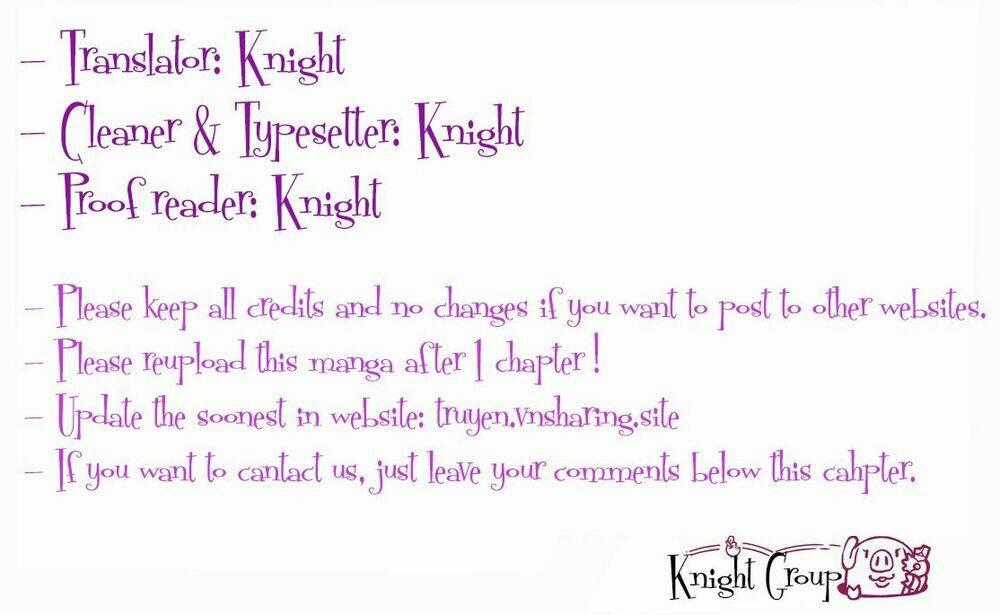 – Translator: Knight
– Cleaner & Typesetter: Knight
– Proof reader: Knight
– Please keep all credits and no changes if you want to post to other websites.
– Please reupload this manga after 1 chapter!
– Update the soonest in website: truyen.vnsharing.site
– If you want to cantact us, just leave your comments below this cahpter.
Knight Group